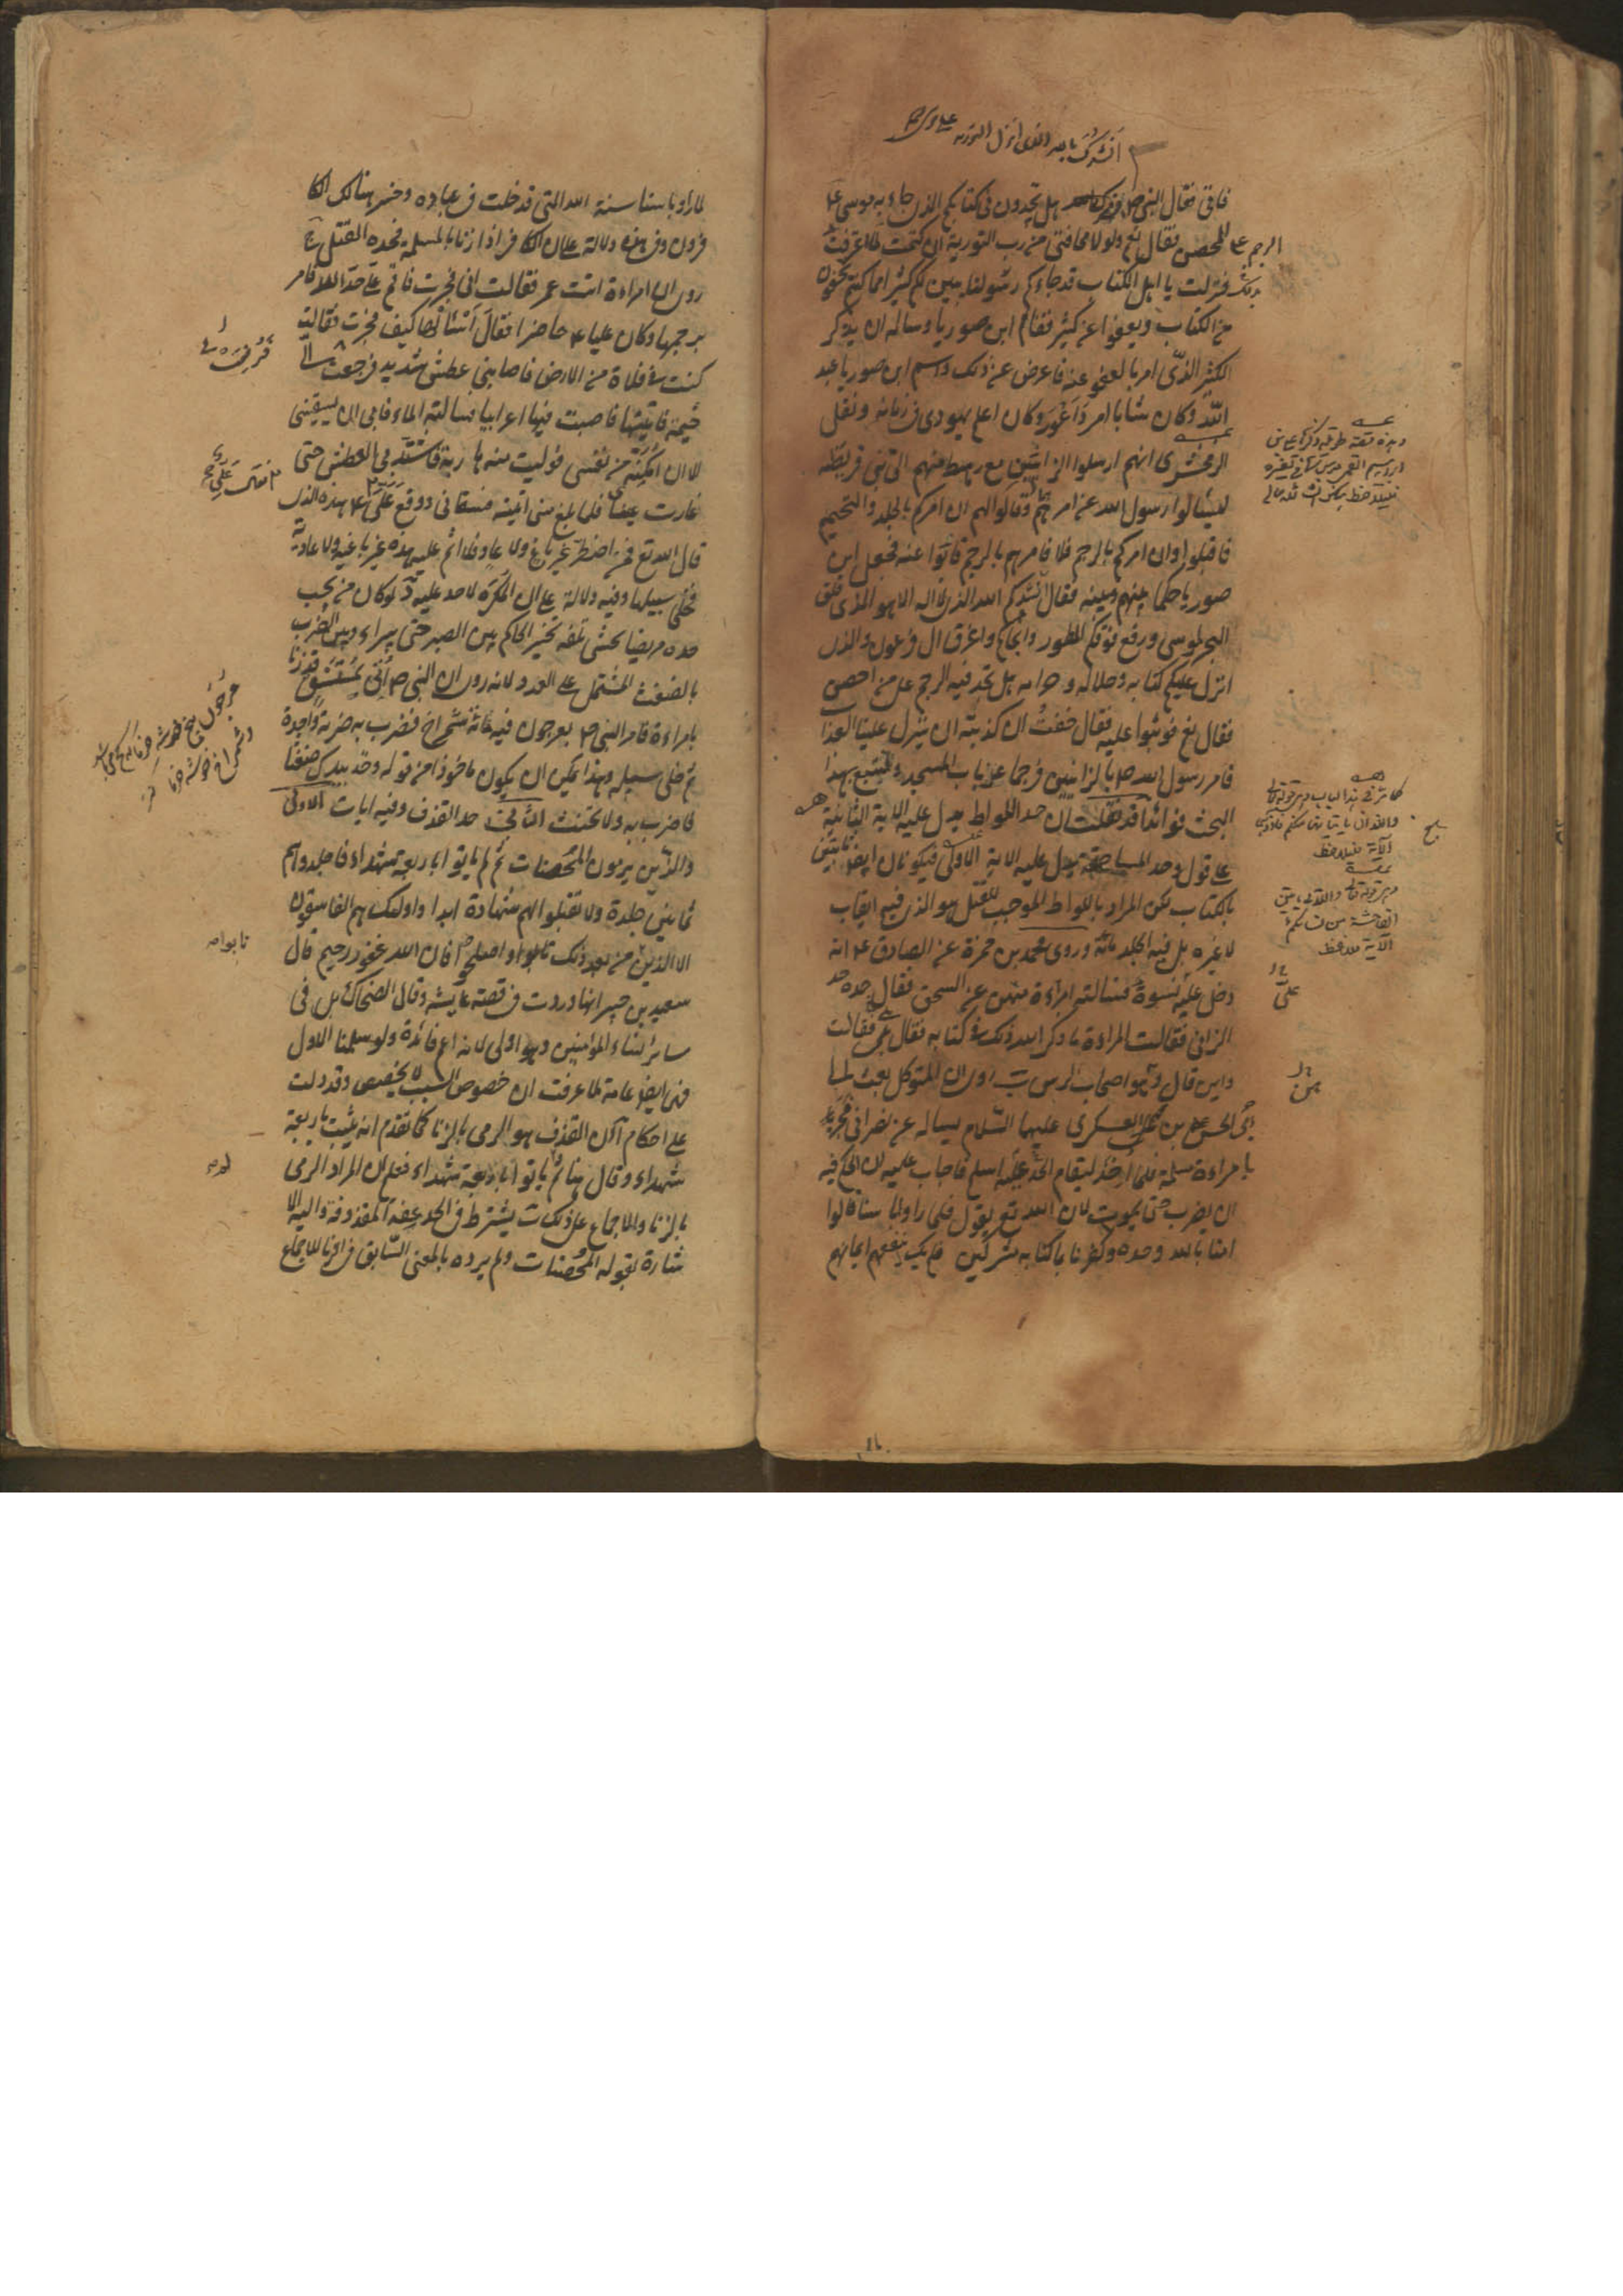 انشدك بالله الذی انزل التوریه علی موسی
فاتی فقال النبی ص هل تجدون فی كتابكم الذی جاء به موسی ع
الرجم علی المحصن فقال نعم ولولا مخافتی من رب التوریة ان كتمت لما اعترفت
بذلك فنزلت یا اهل الكتاب قد جاءكم رسولنا یبین لكم كثیرا مما كنتم تخفون
من الكتاب ویعفوا عن كثیر فقام ابن صوریا وساله ان یذكر
الكثیر الذی امر بالعفو عنه فاعرض عن ذلك واسم ابن صوریا عبد
الله وكان شابا امرد اعور وكان اعلم یهودی فی زمانه ونقل
الزمخشری انهم ارسلوا الزانیین مع رهط منهم الی بنی قریظه
لیسئالوا رسول الله عن امرهم وقالوا لهم ان امركم بالجلد والتحمیم
فاقبلوا وان امركم بالرجم فلا فامرهم بالرجم فابوا عنه فجعل ابن
صوریا حكما بینهم وبینه فقال انشدكم الله الذی لا اله الا هو الذی فلق
البحر لموسی ورفع فوقكم الطور وانجاكم واغرق ال فرعون والذی
انزل علیكم كتابه وحلاله وحرامه هل تجد فیه الرجم علی من احصن
فقال نعم فوثبوا علیه فقال خفت ان كذبته ان ینزل علینا العذاب
فامر رسول الله ص بالزانیین فرجما عند باب المسجد ولنتبع هذا
البحث فوائد قد نقلت ان حد اللواط یدل علیه الایة الثانیة
علی قول وحد المساحقة یدل علیه الایة الاولی فیكونان ایضا ثابتین
بالكتاب لكن المراد باللواط الموجب للقتل هو الذی فیه ایقاب
لا غیره بل فیه الجلد مائة وروی محمد بن حمزة عن الصادق ع انه
دخل علیه نسوة فسالته امراءة منهن عن السحق فقال حده حد
الزانی فقالت المراءة ما ذكر الله ذلك فی كتابه فقال بلی فقالت
واین قال هو اصحاب الرس روی ان المتوكل بعث الی
ابی الحسن علی بن محمد العسكری علیهما السلام یساله عن نصرانی فجر
بامراءة مسلمة فلما اخذ لیقام الحد علیه اسلم فاجاب علیه ان الحكم فیه
ان یضرب حتی یموت لان الله تع یقول فلما راوا باسنا قالوا
امنا بالله وحده وكفرنا بما كنا به مشركین فلم یك ینفعهم ایمانهم
علی
من
لما راوا باسنا سنة الله التی قد خلت فی عباده وخسر هنالك الكا
فرون وفی هذه دلالة علی ان الكافر اذا زنا بالمسلمة فحده القتل
روی ان امراءة اتت عمر فقالت انی فجرت فاقم علی حد الله فامر
برجمها وكان علیا ع حاضرا فقال اسئالها كیف فجرت فقالت
كنت فی فلاة من الارض فاصابنی عطش شدید فرفعت لی
خیمة فاتیتها فاصبت فیها اعرابیا فسالته الماء فابی ان یسقینی
الا ان امكنه من نفسی فولیت منه هاربة فاشتد بی العطش حتی
غارت عینای فلما بلغ منی اتیته فسقانی ووقع علی فقال علی ع هذه الذی
قال الله تع فمن اضطر غیر باغ ولا عاد فلا اثم علیه هذه غیر باغیة ولا عادیة
فخلی سبیلها وفیه دلالة علی ان المكره لا حد علیه لو كان من یجب
حده مریضا یخشی تلفه تخیر الحاكم بین الصبر حتی یبراء وبین الضرب
بالضغث المشتمل علی العدد لانه روی ان النبی ص اتی بمستسق قد زنا
بامراءة فامر النبی ص بعرجون فیه مائة شمراخ فضرب به ضربة واحدة
ثم خلی سبیله وهذا یمكن ان یكون ماخوذا من قوله وخذ بیدك ضغثا
فاضرب به ولا تحنث الثانی حد القذف وفیه ایات الاولی
والذین یرمون المحصنات ثم لم یاتوا باربعة شهداء فاجلدوهم
ثمانین جلدة ولا تقبلوا لهم شهادة ابدا واولئك هم الفاسقون
الا الذین من بعد ذلك تابوا واصلحوا فان الله غفور رحیم قال
سعید بن جبیر انها وردت فی قصة عایشه وقال الضحاك بل فی
سائر نساء المؤمنین وهو اولی لانه اعم فائدة ولو سلمنا الاول
فهی ایضا عامة لما عرفت ان خصوص السبب لا یخصص وقد دلت
علی احكام آ ان القذف هو الرمی بالزنا كما تقدم انه یثبت باربعة
شهداء وقال هنا ثم لم یاتوا باربعة شهداء فعلم ان المراد الرمی
بالزنا والاجماع علی ذلك ب یشترط فی الحد عفة المقذوفة والیه الا
شارة بقوله المحصنات ولم یرده بالمعنی السابق فی الزنا للاجماع
تابوا